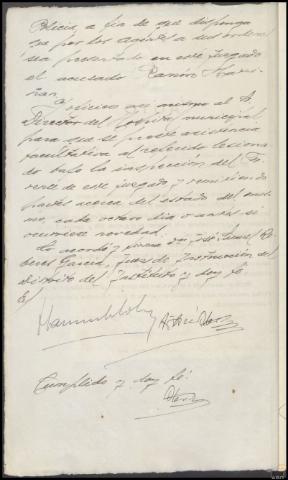 Policía, a fin de que disponga
que por los agentes a sus ordenes
sea presentado en este Juzgado
el acusado Ramón
Ofíciese asi mismo al Sr.
Director del Hospital municipal,
para que se preste asistencia
facultativa al referido lesiona
do bajo la inspección del Fo
rense de este juzgado y remitiendo
partes acerca del estado del mis
mo, cada octavo dia o antes si
ocurriese novedad.
Lo acordó y firma don José
García, Juez de Instrucción del
distrito del Instituto y doy fé.
Cumplido y doy fé.